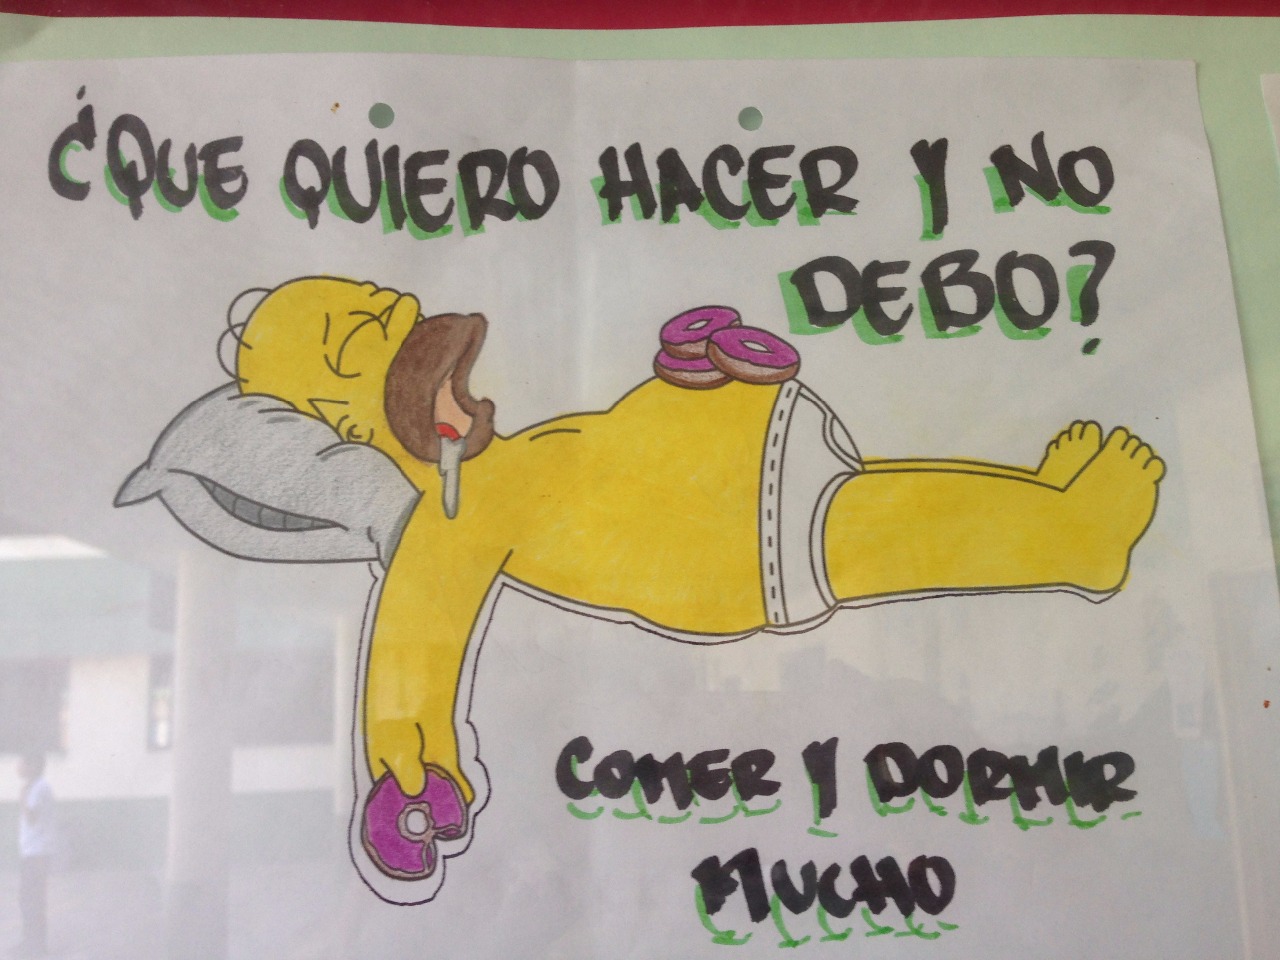 ¿QUE QUIERO HACER Y NO
DEBO?
COMER Y DORMIR
MUCHO